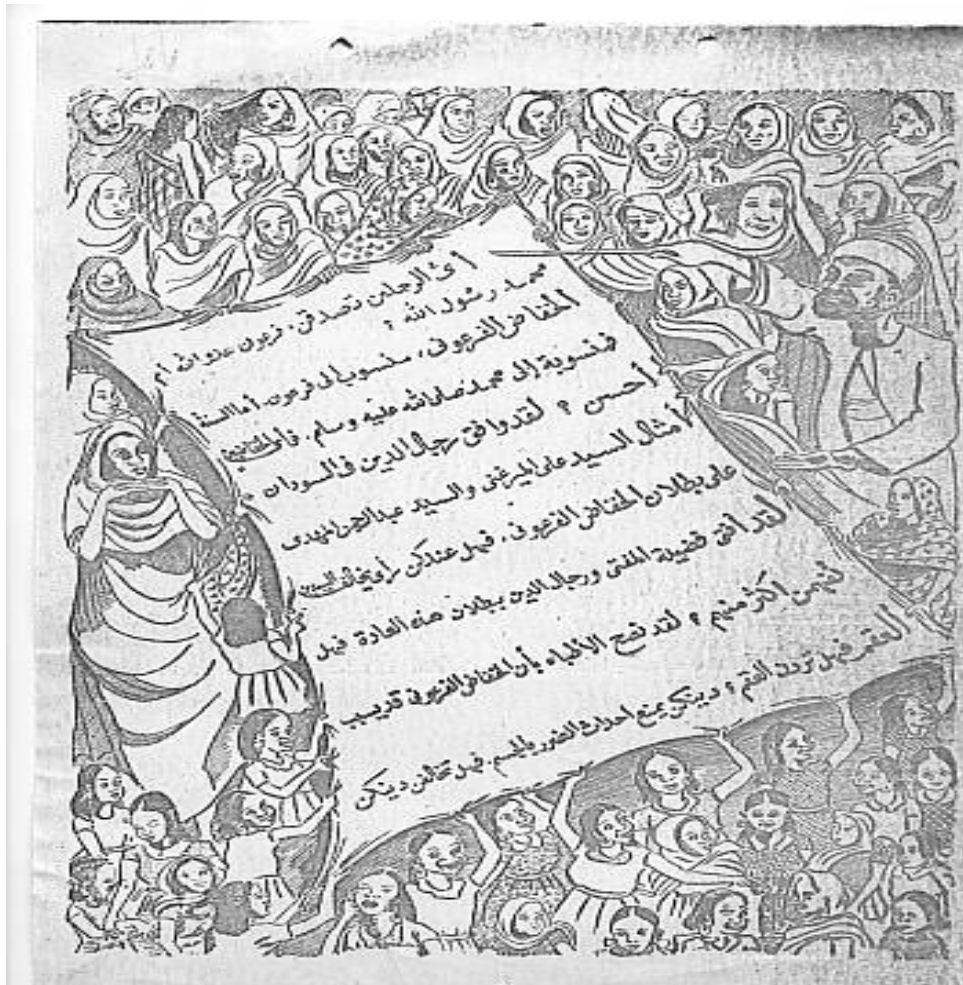 أىّ الرجلين تصدقن، فرعون عدوالله أم
محمد رسول الله ؟
الخفاض الفرعونى، منسوب الى فرعون. أما السنة
فمنسوبة إلى محمد صلى الله عليه وسلم. فاى الخفاضين
أحسن ؟ لقد وافق رجال الدين فى السودان،
أمثال السيد على الميرغنى والسيد عبدالرحمن المهدى
على بطلان الخفاض الفرعونى. فهل عندكن رأى يخالف السيدين
لقد أفتى فضيلة المفتى ورجال الدين ببطلان هذه العادة فهل
أكثر منهم ؟ لقد نصح الأطباء بأن الخفاض الفرعونى قد يسبب
العقم فهل تردن العقم ؟ دينكن يمنع احداث الضرر بالجسم. فهل تخالفن دينكن